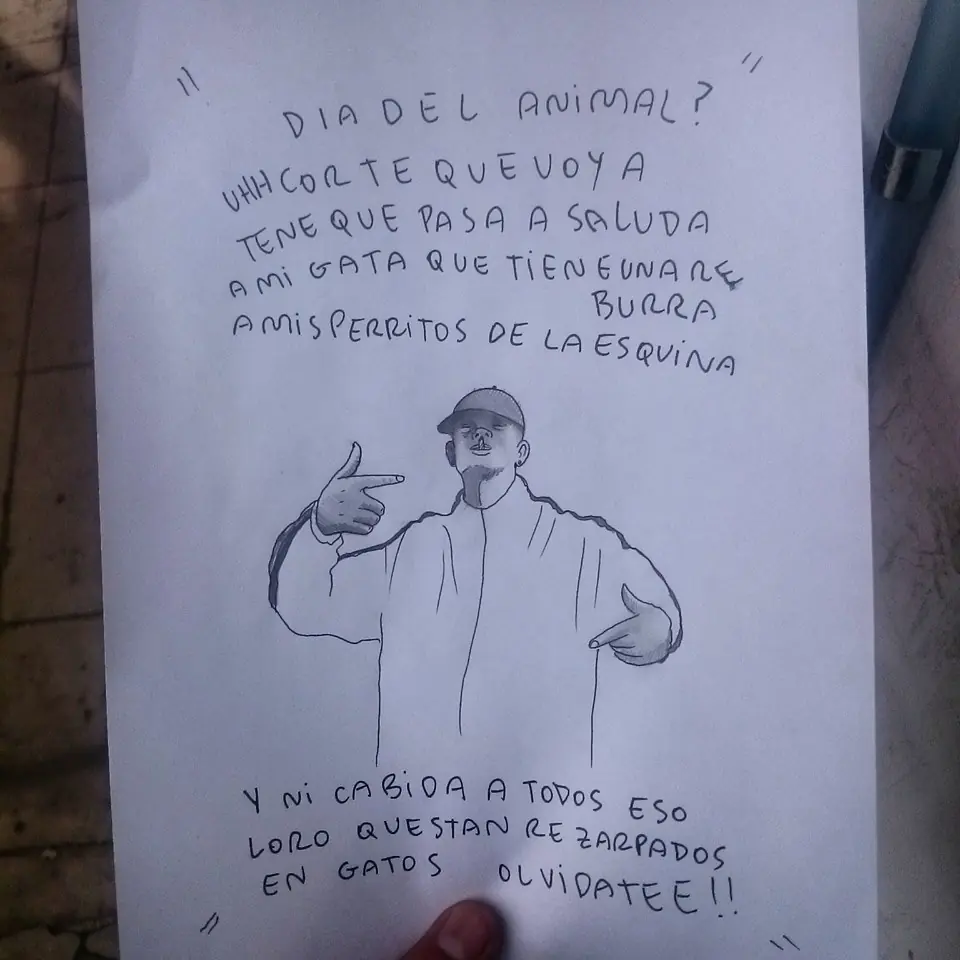 "DIA DEL ANIMAL?"
UHH CORTE QUE VOY A
TENE QUE PASA A SALUDA
A MI GATA QUE TIENE UNA RE
BURRA
A MIS PERRITOS DE LA ESQUINA
Y NI CABIDA A TODOS ESO
LORO QUESTAN RE ZARPADOS
EN GATOS OLVIDATEE!!
"